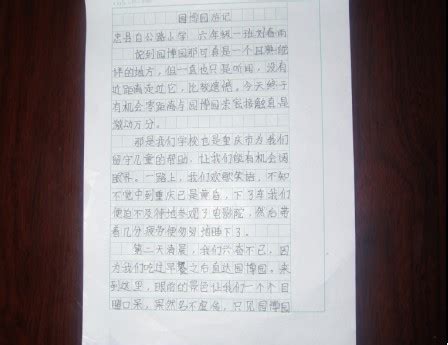 园博园游记
忠县白公路小学 六年级一班刘春雨
说到园博园那可真是一个互异经
评的地方，但一直也只是听闻，没有
近距离走近它，比较遗憾。今天终于
有机会零距离与园博园亲密接触真是
激动万分。
那是我们学校也是重庆市为我们
留守儿童的帮助，让我们能有机会阔
眼界。一路上，我们欢歌笑语，不知
不觉中到重庆已是黄昏，下了车我们
便迫不及待地参观了电影院，然后带
着几分疲劳便匆匆地睡下了。
第二天清晨，我们兴奋不已，因
为我们吃过早餐之后直达园博园。来
到这里，眼前的景色让我们一个个目
瞪口呆，果然名不虚传，只见园博园